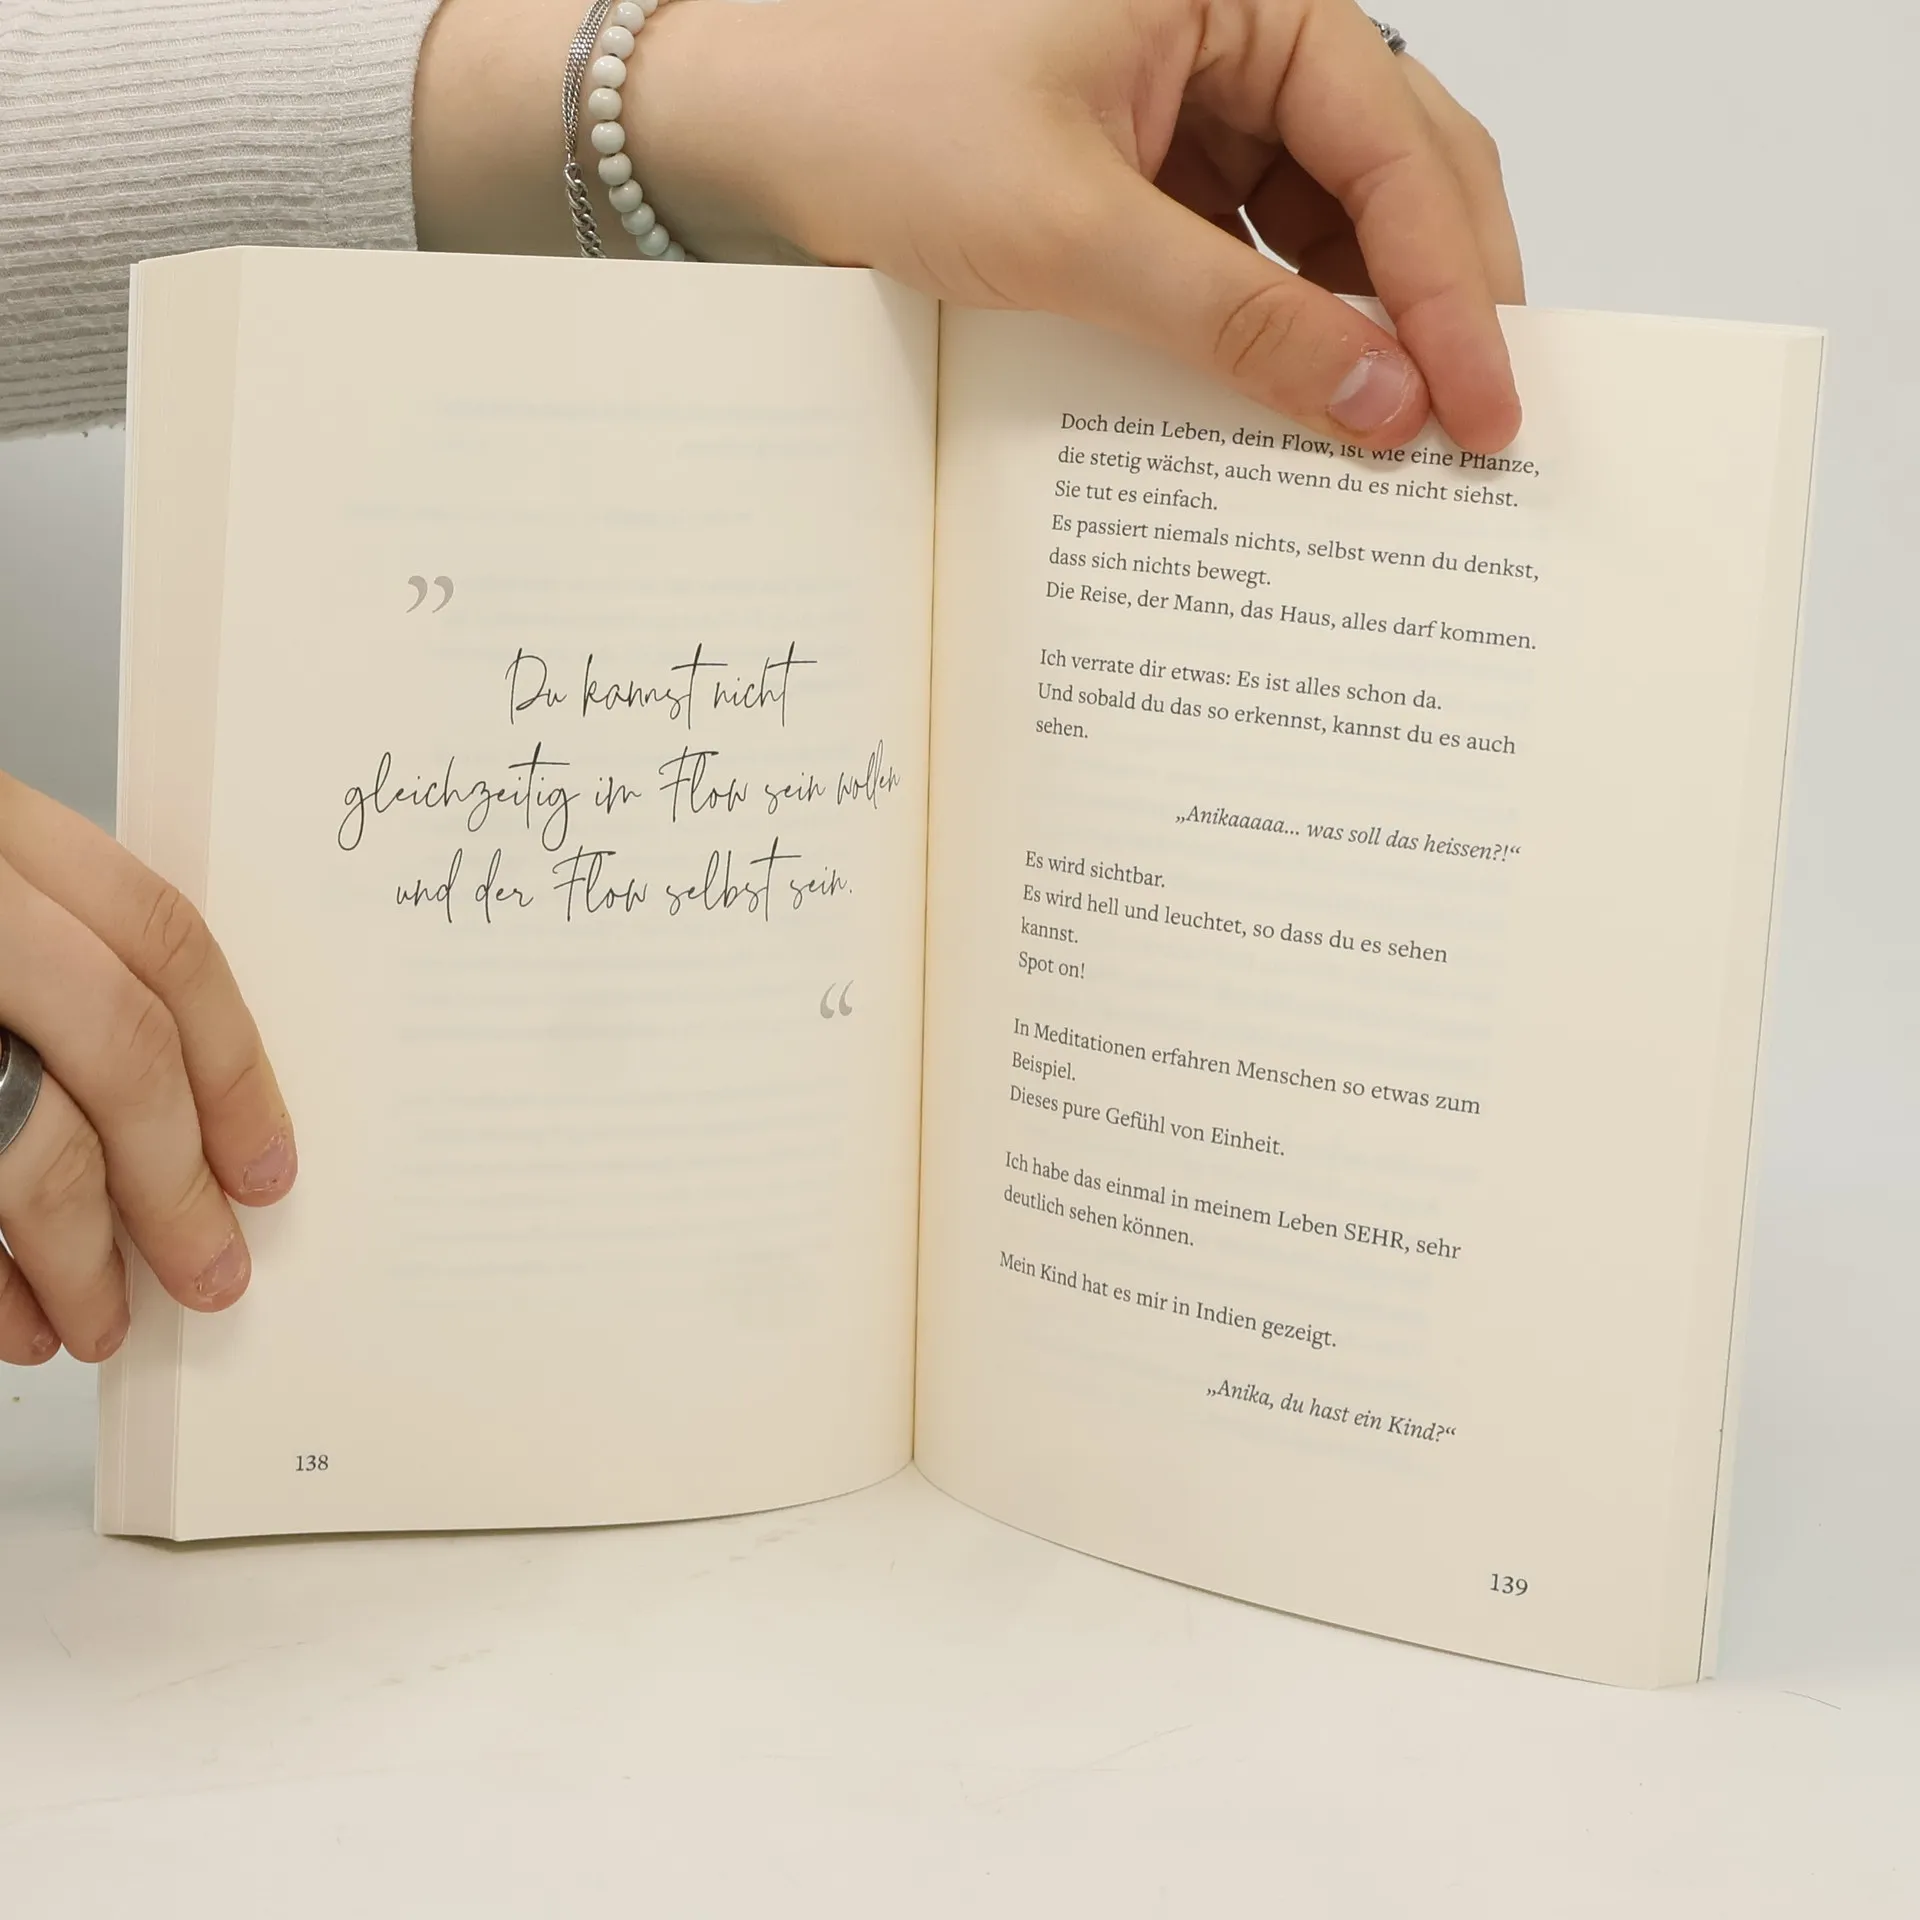 ”
Du kannst nicht
gleichzeitig im Flow sein wollen
und der Flow selbst sein.
“
138
Doch dein Leben, dein Flow, ist wie eine Pflanze,
die stetig wächst, auch wenn du es nicht siehst.
Sie tut es einfach.
Es passiert niemals nichts, selbst wenn du denkst,
dass sich nichts bewegt.
Die Reise, der Mann, das Haus, alles darf kommen.
Ich verrate dir etwas: Es ist alles schon da.
Und sobald du das so erkennst, kannst du es auch
sehen.
„Anikaaaaa... was soll das heissen?!“
Es wird sichtbar.
Es wird hell und leuchtet, so dass du es sehen
kannst.
Spot on!
In Meditationen erfahren Menschen so etwas zum
Beispiel.
Dieses pure Gefühl von Einheit.
Ich habe das einmal in meinem Leben SEHR, sehr
deutlich sehen können.
Mein Kind hat es mir in Indien gezeigt.
„Anika, du hast ein Kind?“
139